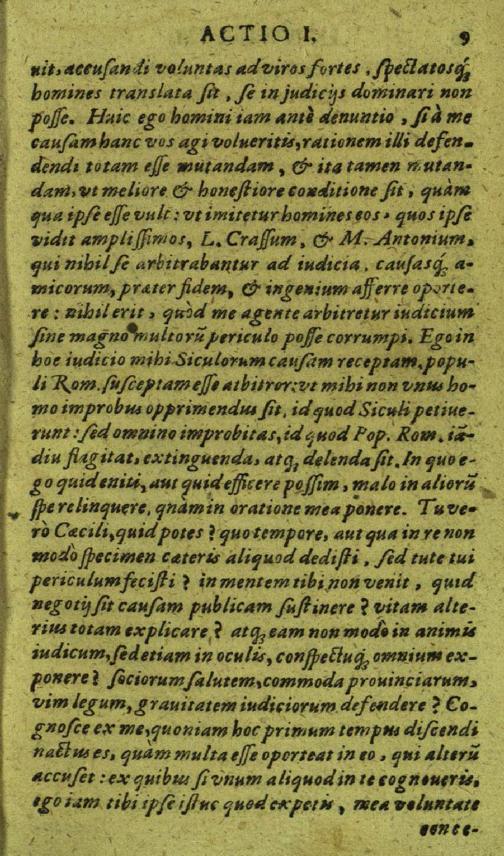 ACTIO I. 9
uit, accusandi voluntas ad viros fortes, spectatosq́;
homines translata sit, se in judicijs dominari non
posse. Huic ego homini iam antè denuntio, si à me
causam hanc vos agi volueritis, rationem illi defen-
dendi totam esse mutandam, & ita tamen mutan-
dam, vt meliore & honestiore conditione sit, quàm
qua ipse esse vult: vt imitetur homines eos, quos ipse
vidit amplissimos, L. Crassum, & M. Antonium,
qui nihil se arbitrabantur ad iudicia, causasq́; a-
micorum, præter fidem, & ingenium afferre oporte-
re: nihil erit, quòd me agente arbitretur iudicium
sine magno multorũ periculo posse corrumpi. Ego in
hoc iudicio mihi Siculorum causam receptam, popu-
li Rom. susceptam esse atbitror: vt mihi non vnus ho-
mo improbus opprimendus sit, id quod Siculi petiue-
runt: sed omnino improbitas, id quod Pop. Rom. iã-
diu flagitat, extinguenda, atq; delenda sit. In quo e-
go quid eniti, aut quid efficere possim, malo in aliorũ
spe relinquere, quàm in oratione mea ponere. Tu ve-
rò Cæcili, quid potes? quo tempore, aut qua in re non
modo specimen cæteris aliquod dedisti, sed tute tui
periculum fecisti? in mentem tibi non venit, quid
negotij sit causam publicam sustinere? vitam alte-
rius totam explicare? atq; eam non modo in animis
iudicum, sed etiam in oculis, conspectuq́; omnium ex-
ponere? sociorum salutem, commoda prouinciarum,
vim legum, grauitatem iudiciorum defendere? Co-
gnosce ex me, quoniam hoc primum tempus discendi
nactus es, quàm multa esse oporteat in eo, qui alterũ
accuset: ex quibus si vnum aliquod in te cognoueris,
ego iam tibi ipse istuc quod expetis, mea voluntate
conce-